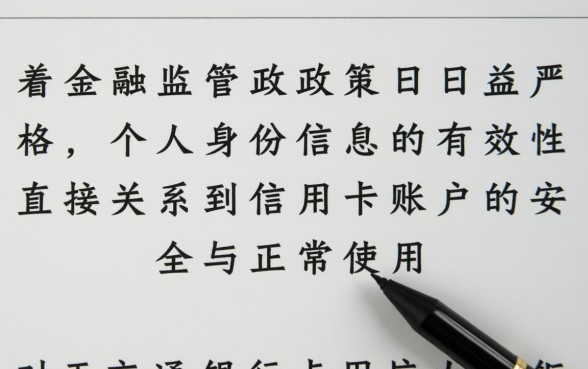 着金融监管政政策日日益严
格，个人身份信息的有效性
直接关系到信用卡账户的安
全与正常使用
对于交通银行卡用户人